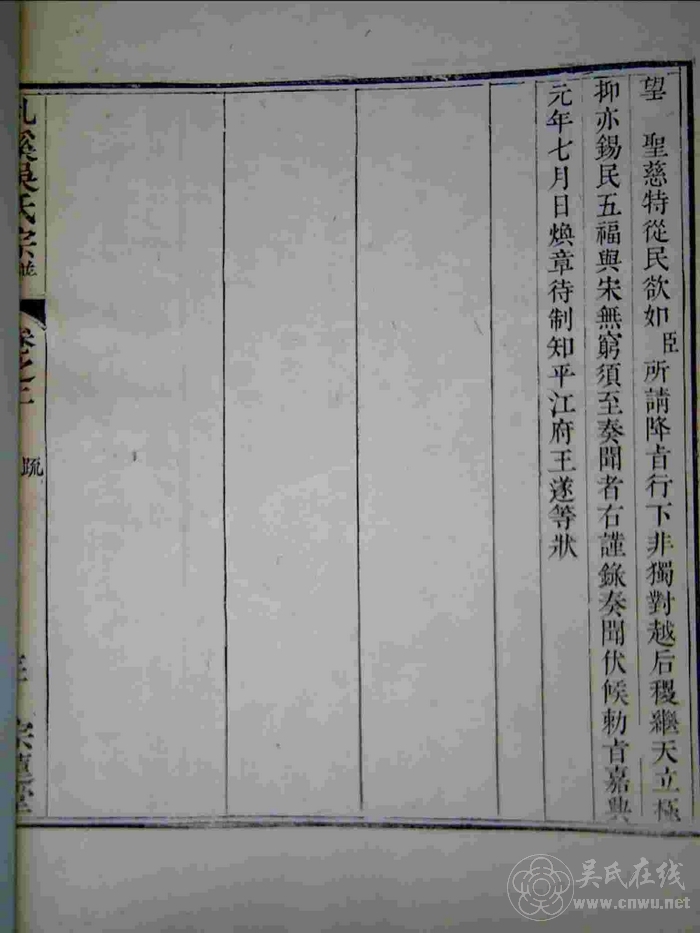 望　聖慈特從民欲如臣所請降旨行下非獨對越后稷繼天立極
抑亦錫民五福與宋無窮須至奏聞者右謹錄奏聞伏候勅旨嘉典
元年七月日煥章待制知平江府王遂等狀
溪吳氏宗譜
卷之三
疏
三
宗
吴氏在线
www.cnwu.net